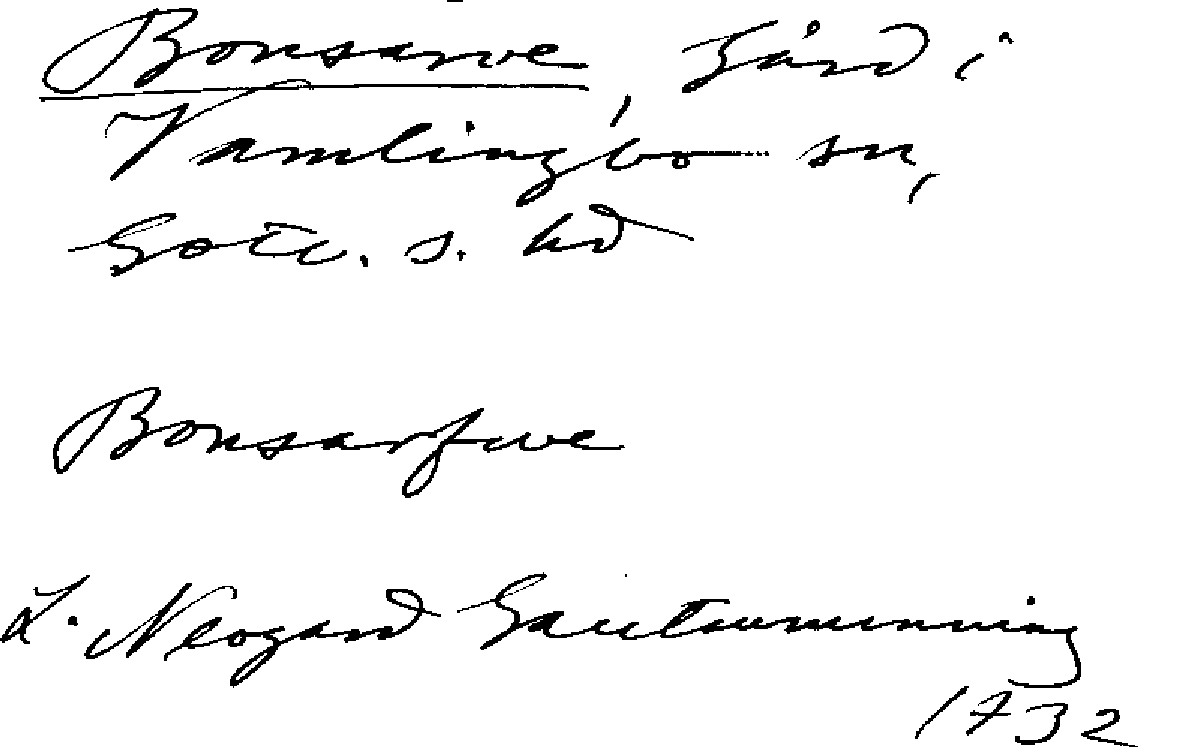 Bonsarve, gård i
Vamlingbo sn,
Gotl. s. hd
Bonsarfwe
L. Neogard Gautauminning
1732